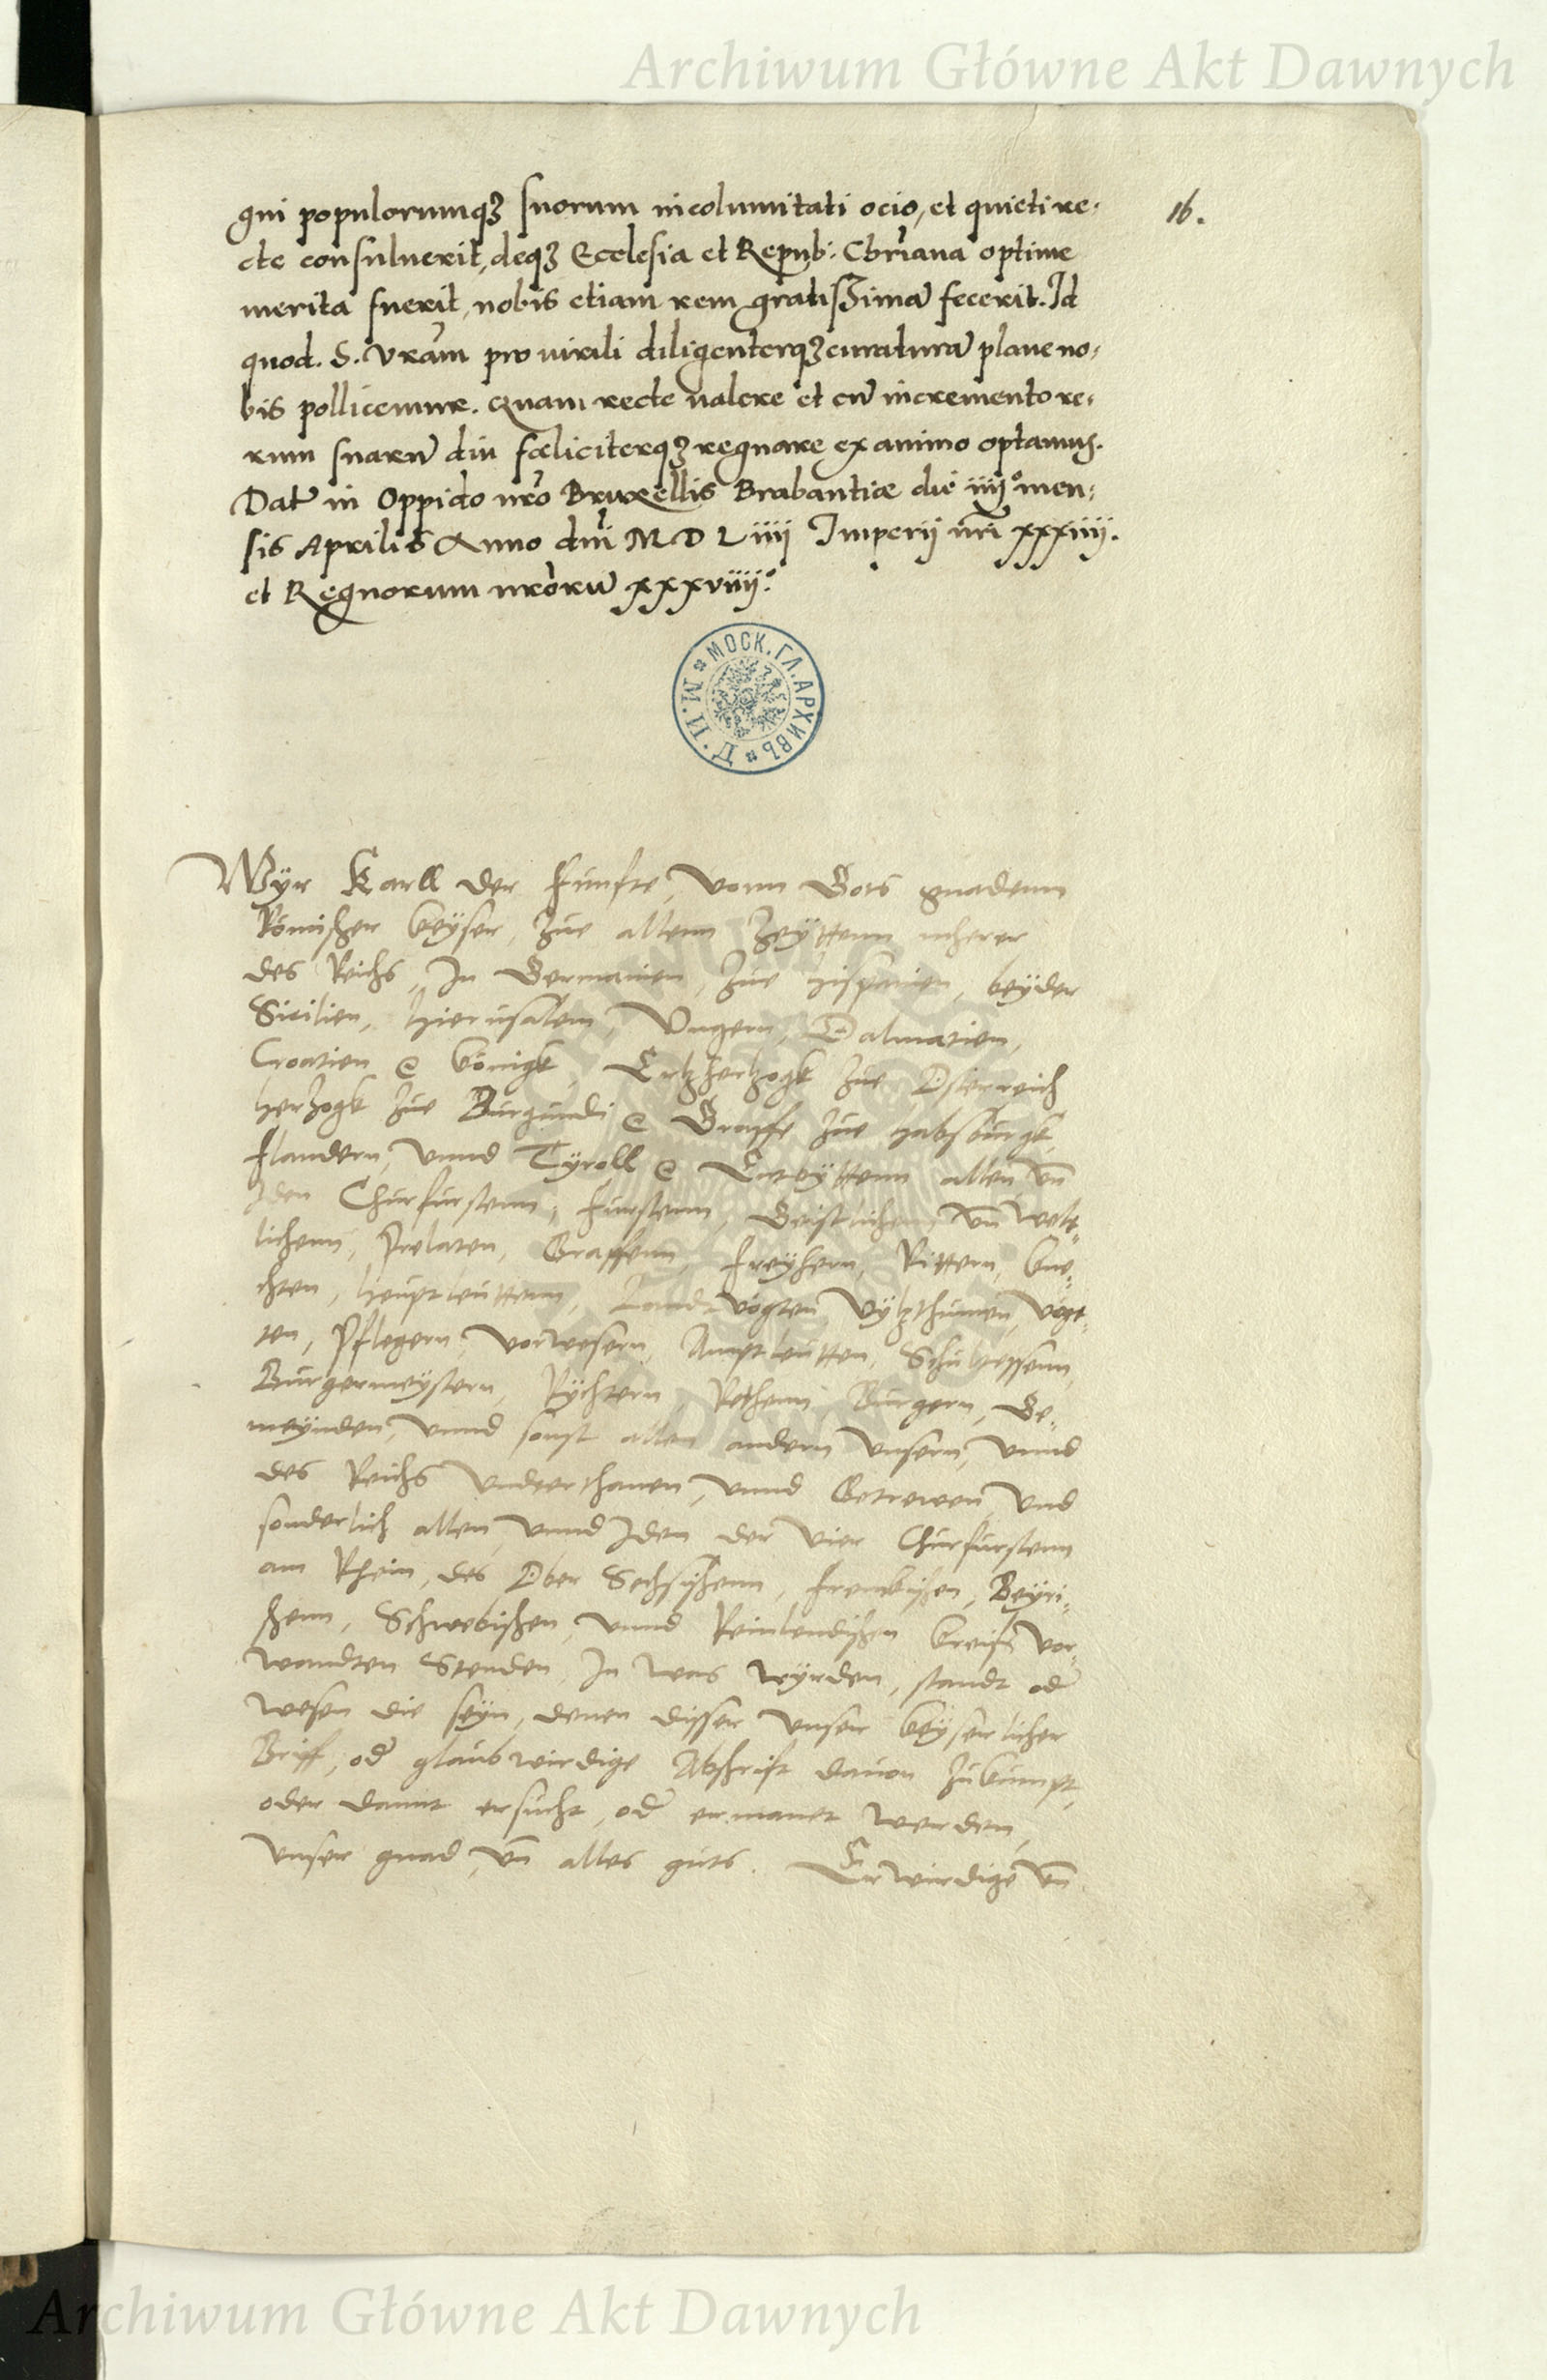 Archiwum Główne Akt Dawnych
16.
gni populorumqȝ suorum incolumitati ocio, et quieti re⸗
cte consuluerit, deqȝ Ecclesia et Repub: Chriana optime
merita fuerit, nobis etiam rem gratissimā fecerit. Id
quod. S. Vram pro uirili diligenterqȝ curaturā plane no⸗
bis pollicemur. Quam recte ualere et cū incremento re⸗
rum suarū diu fœliciterqȝ regnare ex animo optamus.
Dat in Oppido nro Bruxellis Brabantiæ die iiij° men⸗
sis Aprilis Anno dni M D L iiij Imperij nri xxxiiij.
et Regnorum nrorū xxxviiij°.
МОСК. ГЛ. АРХИВЪ М. И. Д.
Wyr Karll der Funfte, vonn Gots gnadenn
Römischer keyser, zue allenn Zeyttenn meherer
des Reichs, In Germanien, zue Hispanien, beyder
Sicilien, Hierusalem, Vngern, Dalmatien,
Croatien &c königk, Ertzhertzogk zue Osterreich
Hertzogk zue Burgundi &c Graffe zue Habsburgk,
Flandern, vnnd Tyroll &c Entpyttenn allen vn̄
Iden Churfurstenn, Furstenn, Geistlichen vn̄ welt⸗
lichenn, Prelaten, Graffenn, Freyhern, Rittern, kne⸗
chten, Heuptleuttenn, Landtvögten, Vytzthumen, Vög⸗
ten, Pflegern, vorwesern, Amptleutten, Schultessenn,
Burgermeystern, Rychtern, Rethenn, Burgern, Ge⸗
meynden, vnnd sonst allen andern vnsern, vnnd
des Reichs vnderthanen, vnnd Getrewen vnd
sonderlich allen vnnd Iden der vier Churfurstenn
am Rhein, des Ober Sechsischenn, Frenckischen, Beyri⸗
schenn, Schwebischen, vnnd Reinlendischen kreiss vor⸗
wandten Stenden, In was wyrden, standt od
wesen die seyn, denen disser vnser keyserlicher
Briff, od glaubwirdige Abschrift dauon zukumpt,
oder damit ersucht, od ermanet werden,
vnser gnad vn̄ alles guts. Erwirdige vn̄
Archiwum Główne Akt Dawnych